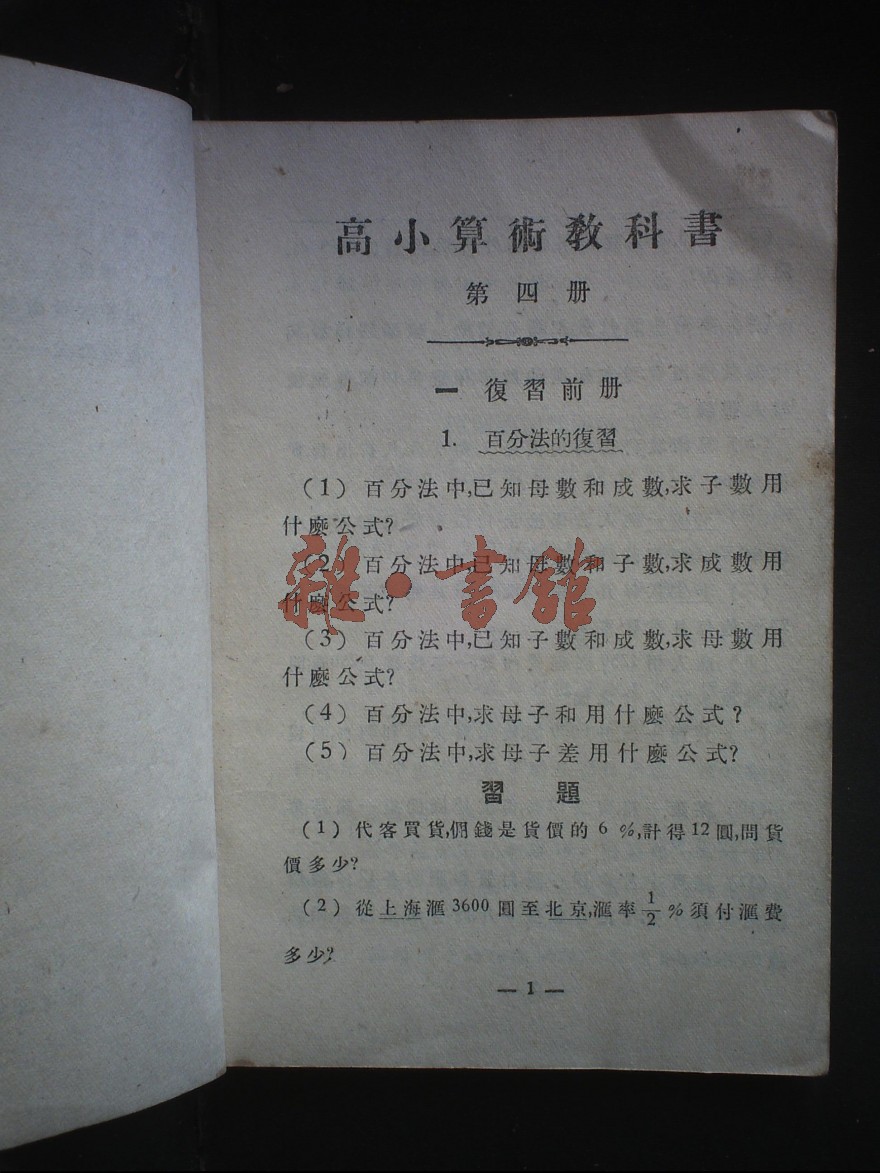 高小算術教科書
第四册
一 復習前册
1. 百分法的復習
(1) 百分法中,已知母數和成數,求子數用
什麼公式?
(2) 百分法中,已知母數和子數,求成數用
什麼公式?
(3) 百分法中,已知子數和成數,求母數用
什麼公式?
(4) 百分法中,求母子和用什麼公式?
(5) 百分法中,求母子差用什麼公式?
習題
(1) 代客買貨,佣錢是貨價的6%,計得12圓,問貨
價多少?
(2) 從上海滙3600圓至北京,滙率1/2%須付滙費
多少?
— 1 —
雜·書館